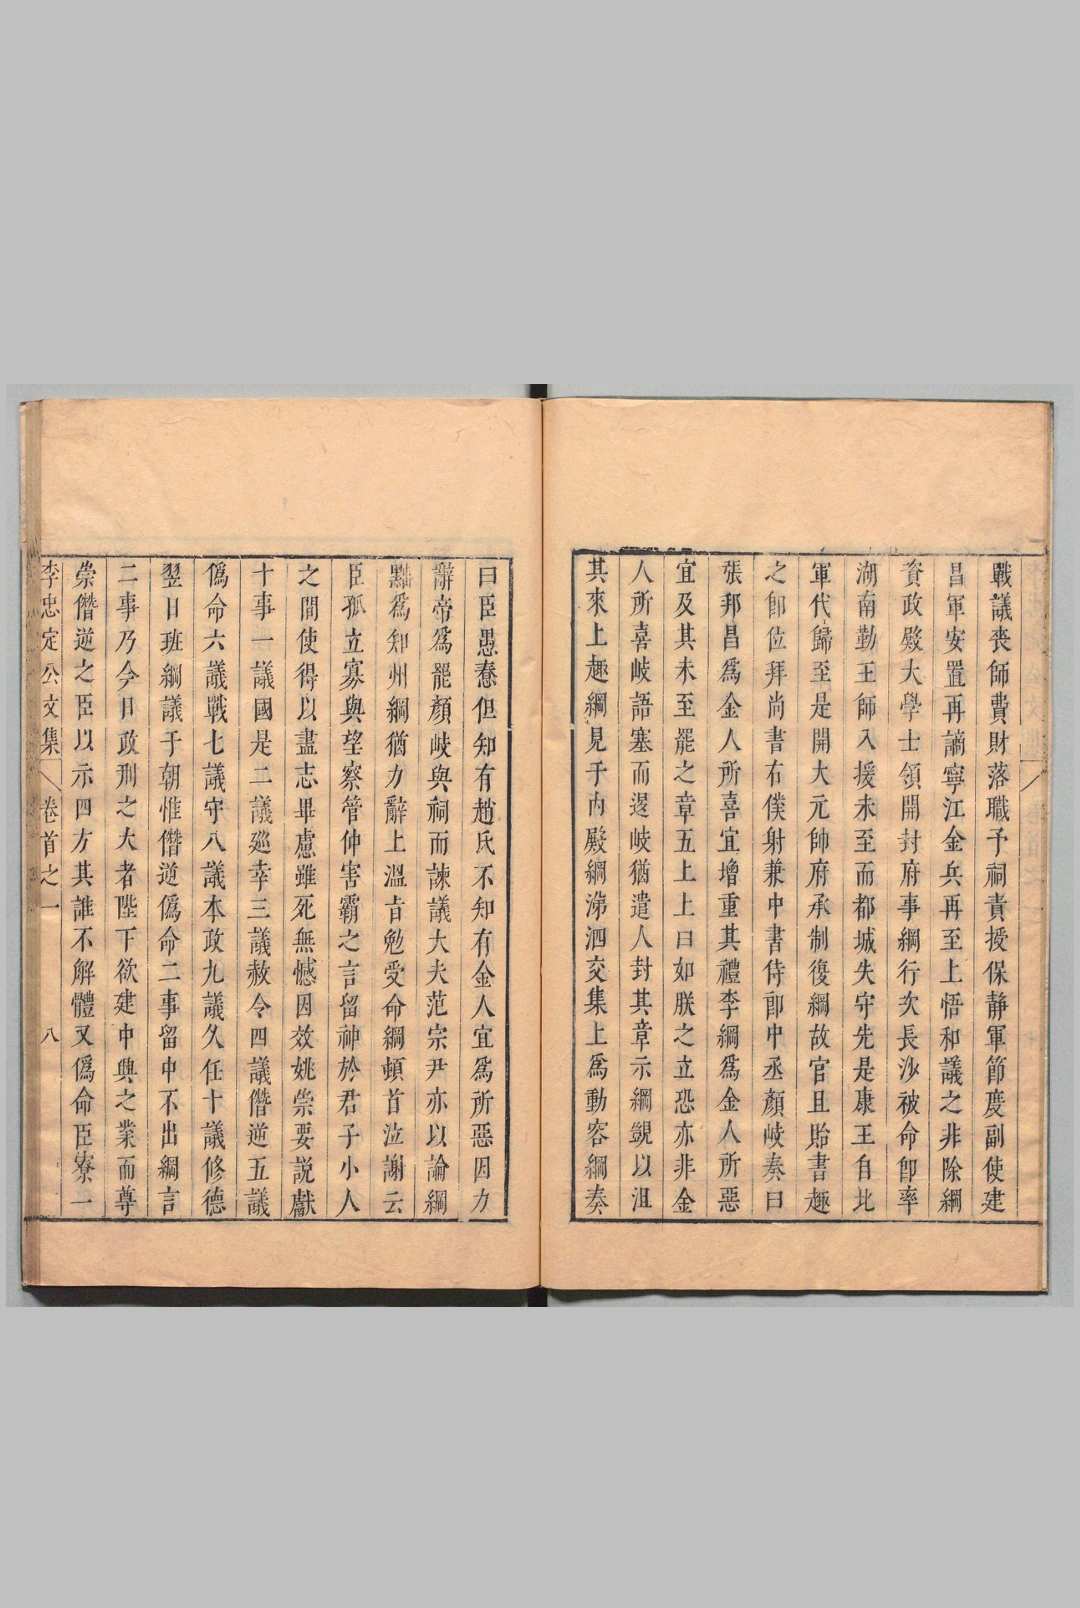 戰議喪師費財落職予祠責授保靜軍節度副使建
昌軍安置再謫寧江金兵再至上悟和議之非除綱
資政殿大學士領開封府事綱行次長沙被命卽率
湖南勤王師入援未至而都城失守先是康王自北
軍代歸至是開大元帥府承制復綱故官且貽書趣
之卽位拜尚書右僕射兼中書侍郞中丞顏岐奏曰
張邦昌爲金人所喜宜增重其禮李綱爲金人所惡
宜及其未至罷之章五上上曰如朕之立恐亦非金
人所喜岐語塞而退岐猶遣人封其章示綱覬以沮
其來上趣綱見于內殿綱涕泗交集上爲動容綱奏
曰臣愚惷但知有趙氏不知有金人宜爲所惡因力
辭帝爲罷顏岐與祠而諫議大夫范宗尹亦以論綱
黜爲知州綱猶力辭上溫旨勉受命綱頓首泣謝云
臣孤立寡與望察管仲害霸之言留神於君子小人
之間使得以盡志畢慮雖死無憾因效姚崇要說獻
十事一議國是二議巡幸三議赦令四議僭逆五議
僞命六議戰七議守八議本政九議久任十議修德
翌日班綱議于朝惟僭逆僞命二事留中不出綱言
二事乃今日政刑之大者陛下欲建中興之業而尊
崇僭逆之臣以示四方其誰不解體又僞命臣寮一
李忠定公文集 卷首之一 八